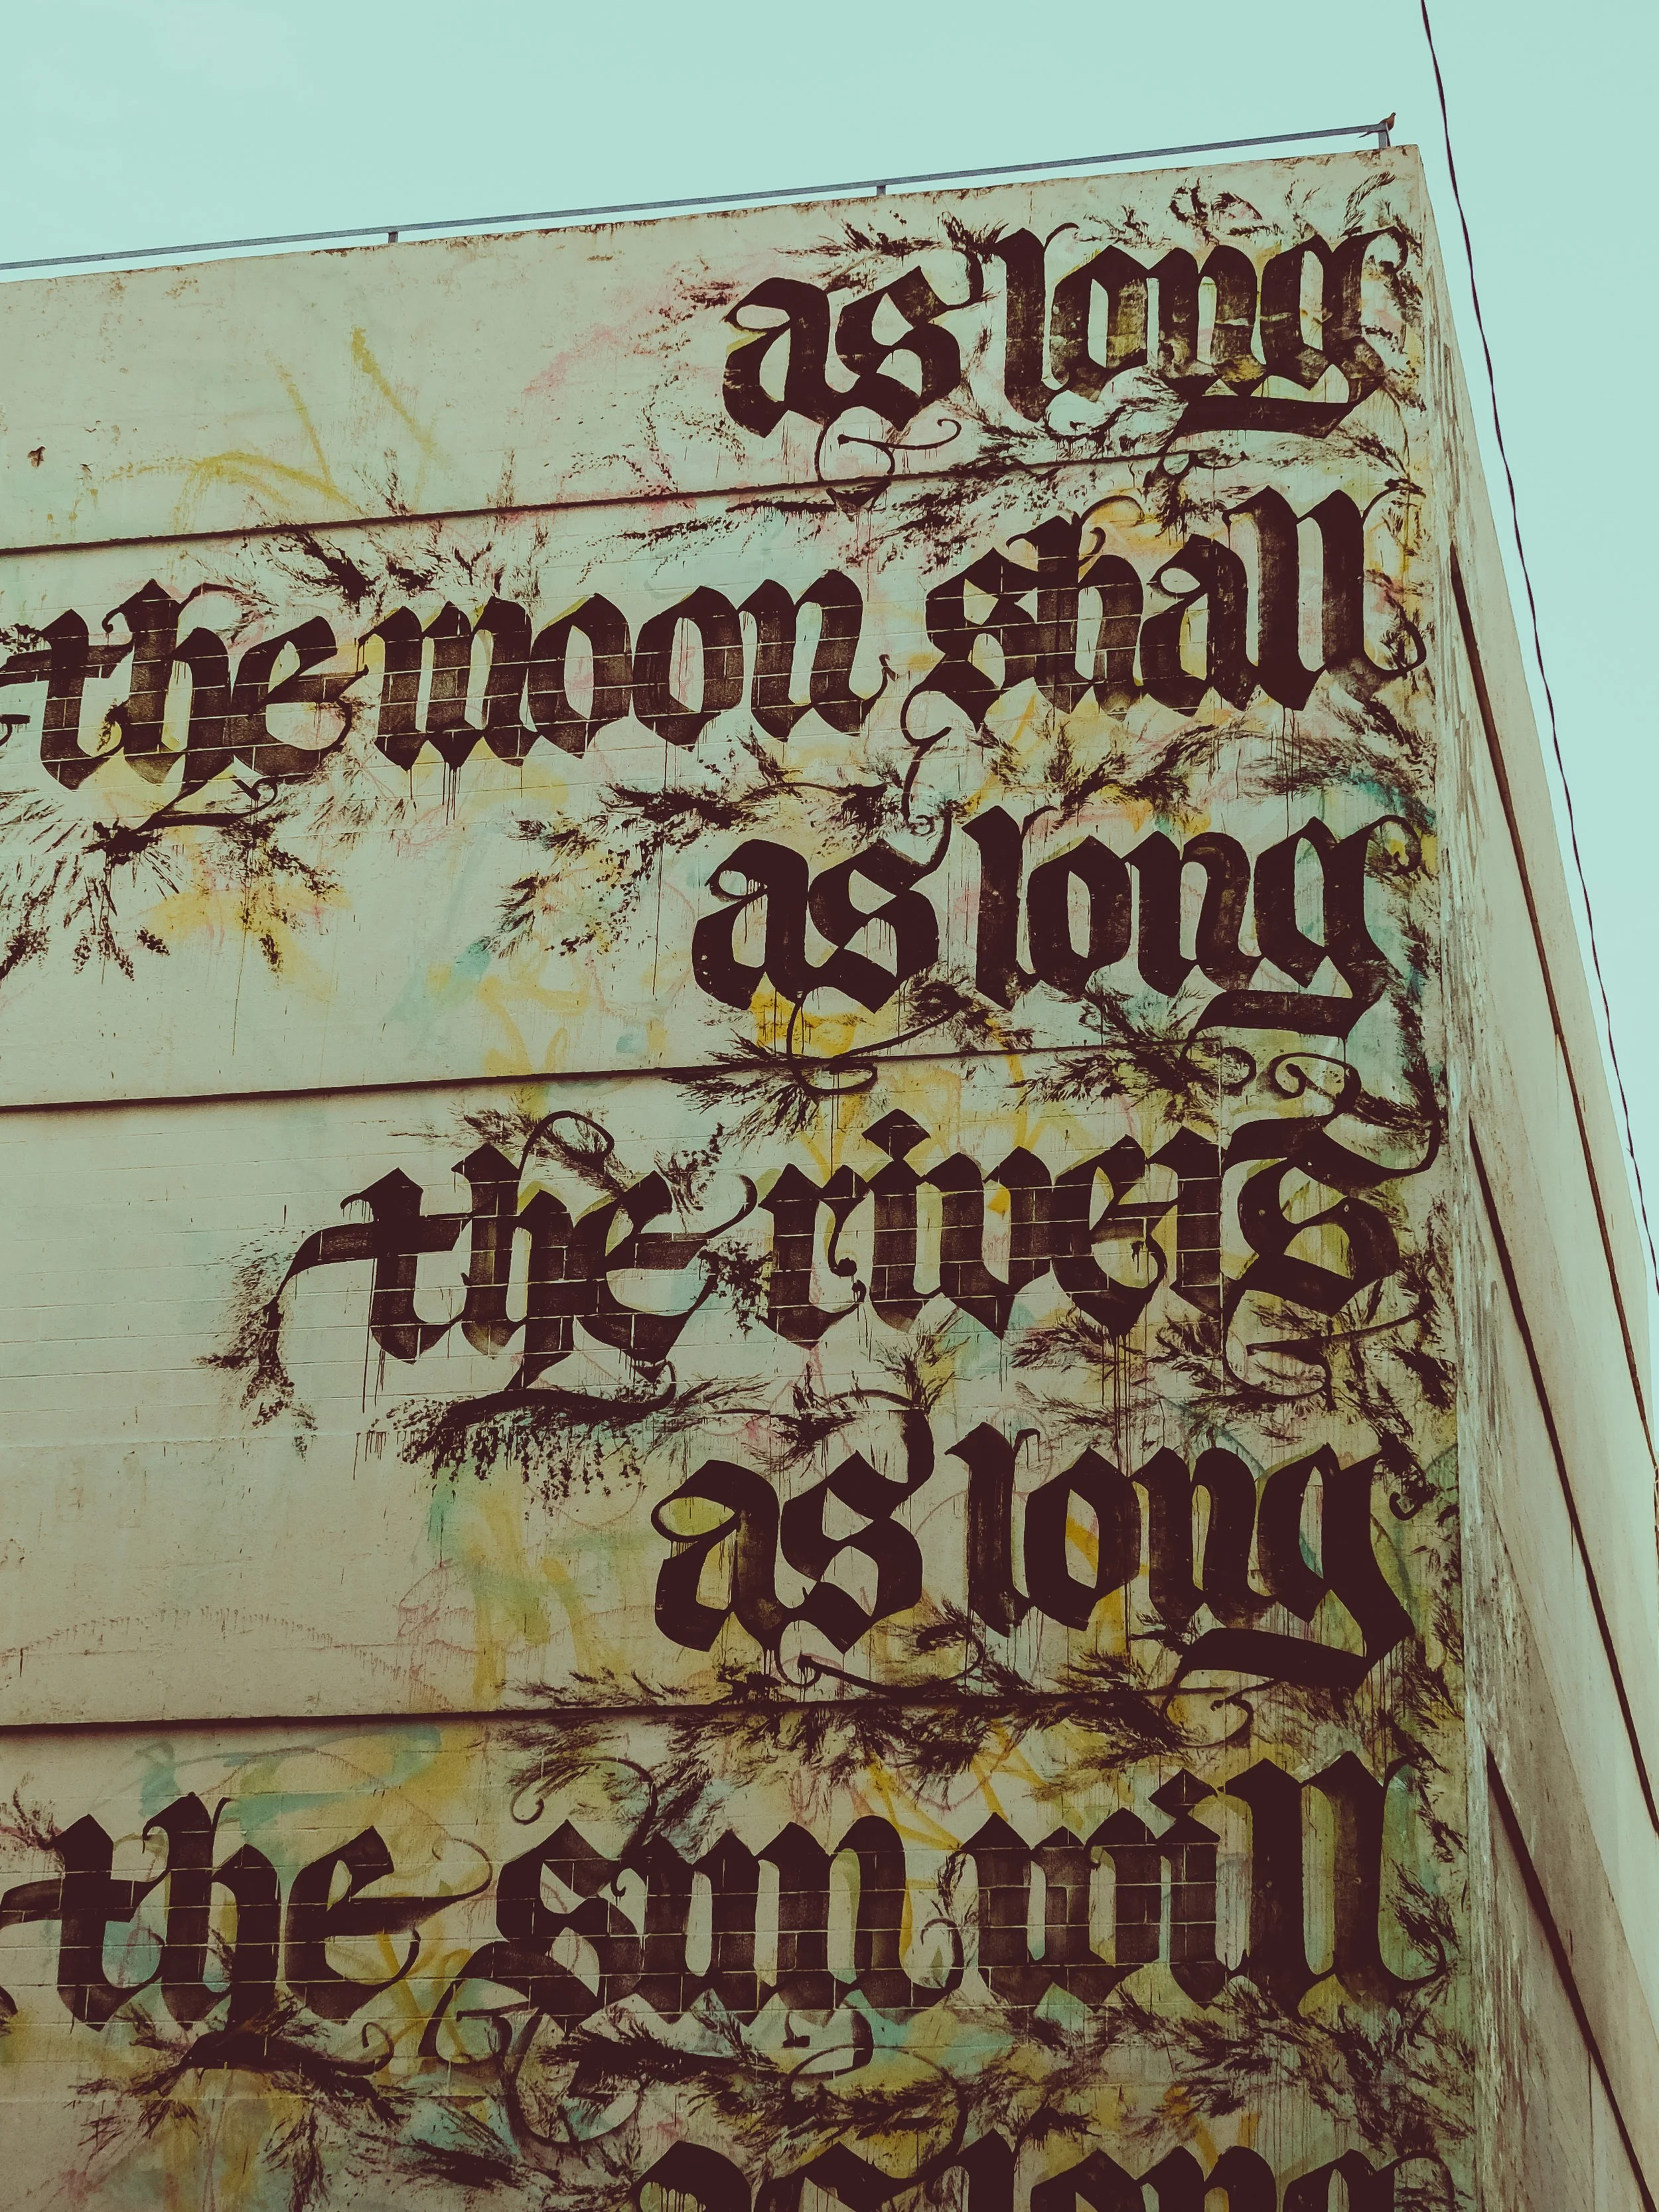 as long
the moon shall
as long
the rivers
as long
the sun will
as long